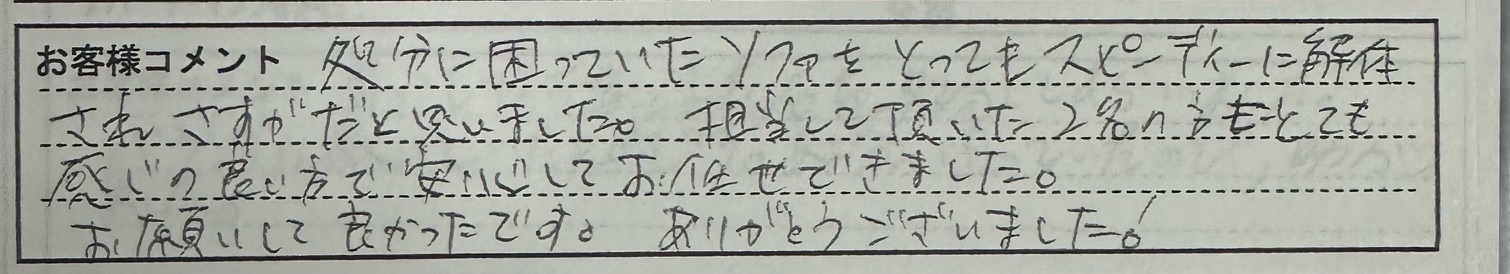 お客様コメント 処分に困っていたソファをとってもスピーディーに解体
され さすがだと思いました。担当して頂いた2名の方もとても
感じの良い方で安心してお任せできました。
お願いして良かったです。ありがとうございました!